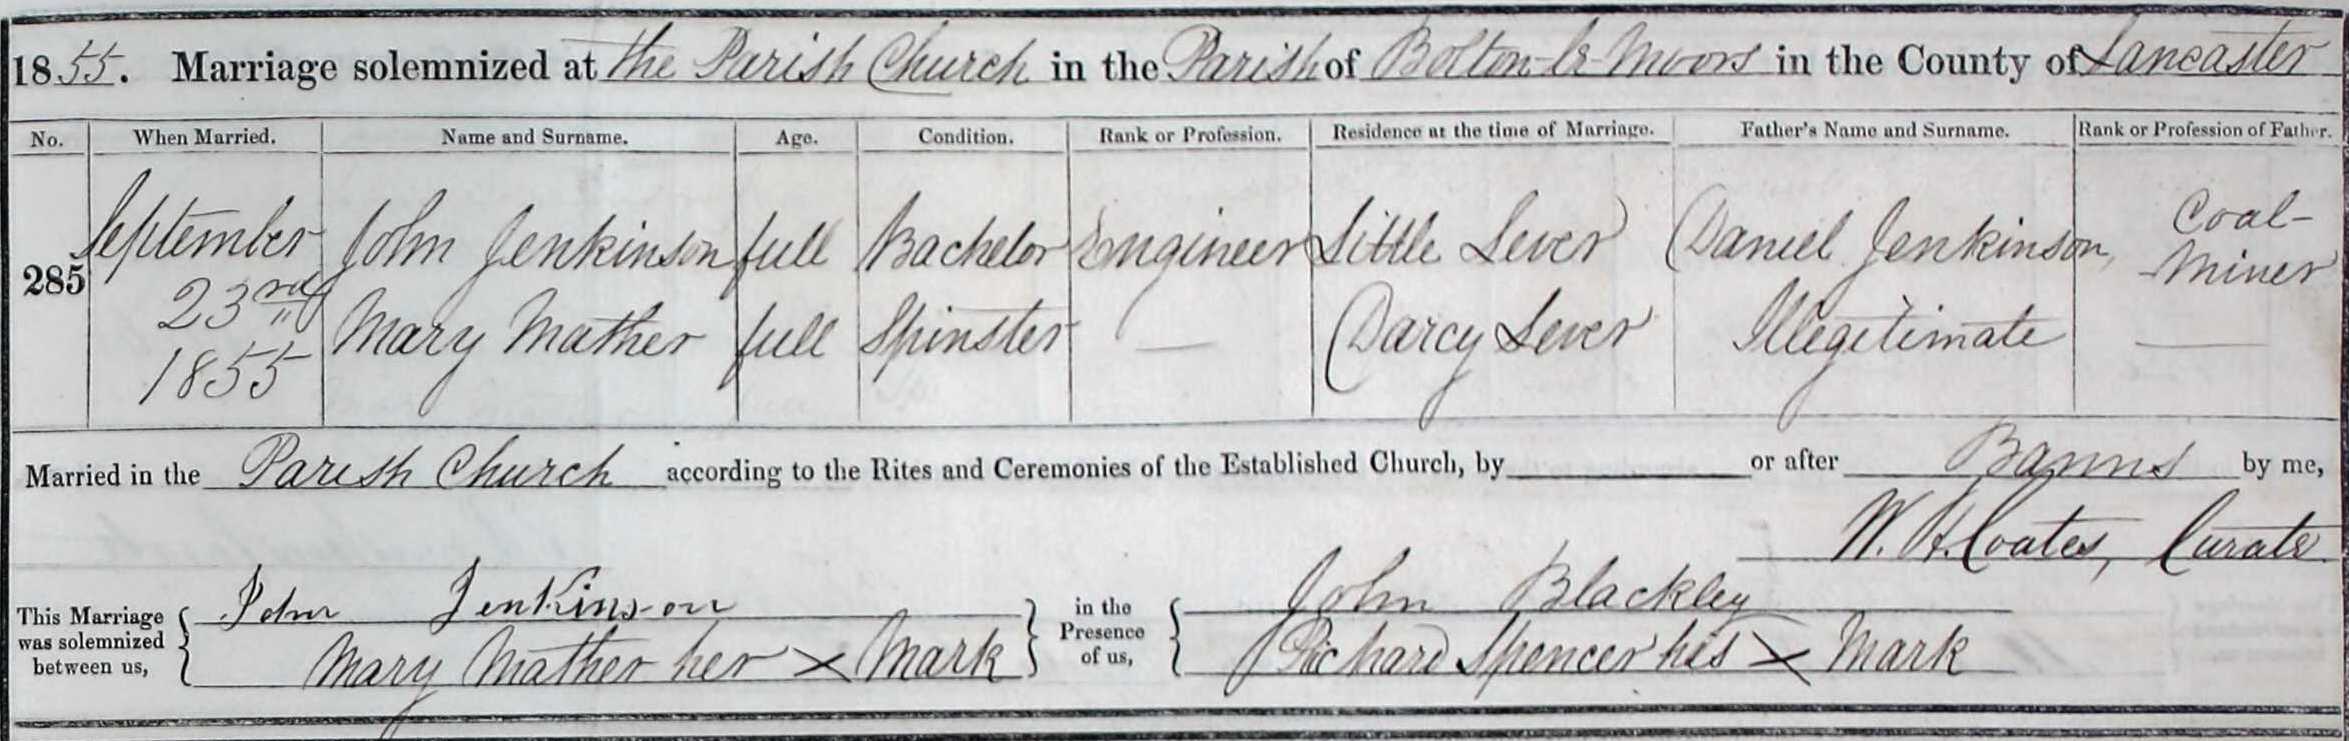 1855. Marriage solemnized at the Parish Church in the Parish of Bolton-le-Moors in the County of Lancaster
No. When Married. Name and Surname. Age. Condition. Rank or Profession. Residence at the time of Marriage. Father's Name and Surname. Rank or Profession of Father.
285 September 23rd 1855 John Jenkinson full Bachelor Engineer Little Lever Daniel Jenkinson, Coal-Miner
Mary Mather full Spinster — Darcy Lever Illegitimate —
Married in the Parish Church according to the Rites and Ceremonies of the Established Church, by or after Banns by me,
W. H. Coates, Curate
This Marriage was solemnized between us, { John Jenkinson } in the Presence of us, { John Blackley
Mary Mather her X Mark Richard Spencer his X Mark